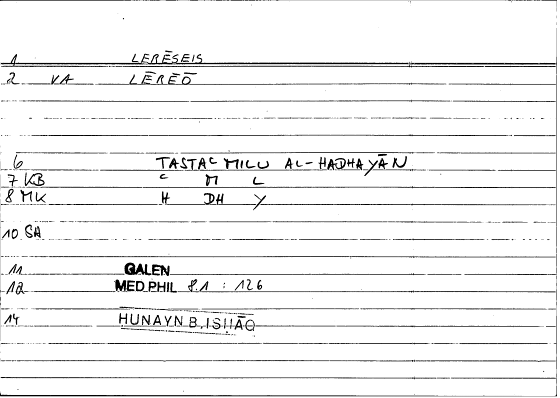 1 LERĒSEIS
2 VA LĒRĒŌ
6 TASTAᶜMILU AL-HADHAYĀN
7 KB ᶜ M L
8 MK H DH Y
10 SA
11 GALEN
12 MED.PHIL 8.1 : 126
14 HUNAYN B. ISḤĀQ